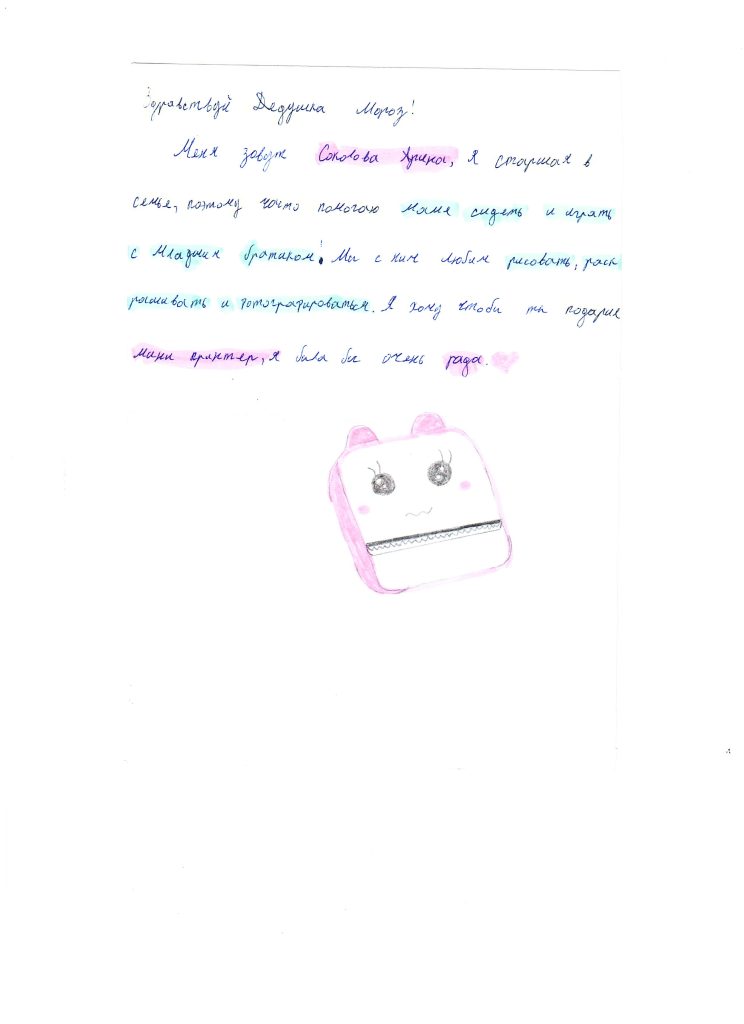 Здравствуй Дедушка Мороз!
Меня зовут Соколова Арина, я старшая в
семье, поэтому часто помогаю маме сидеть и играть
с младшим братиком! Мы с ним любим рисовать, раск
рашивать и фотографироваться. Я хочу чтобы ты подарил
мини принтер, я была бы очень рада.